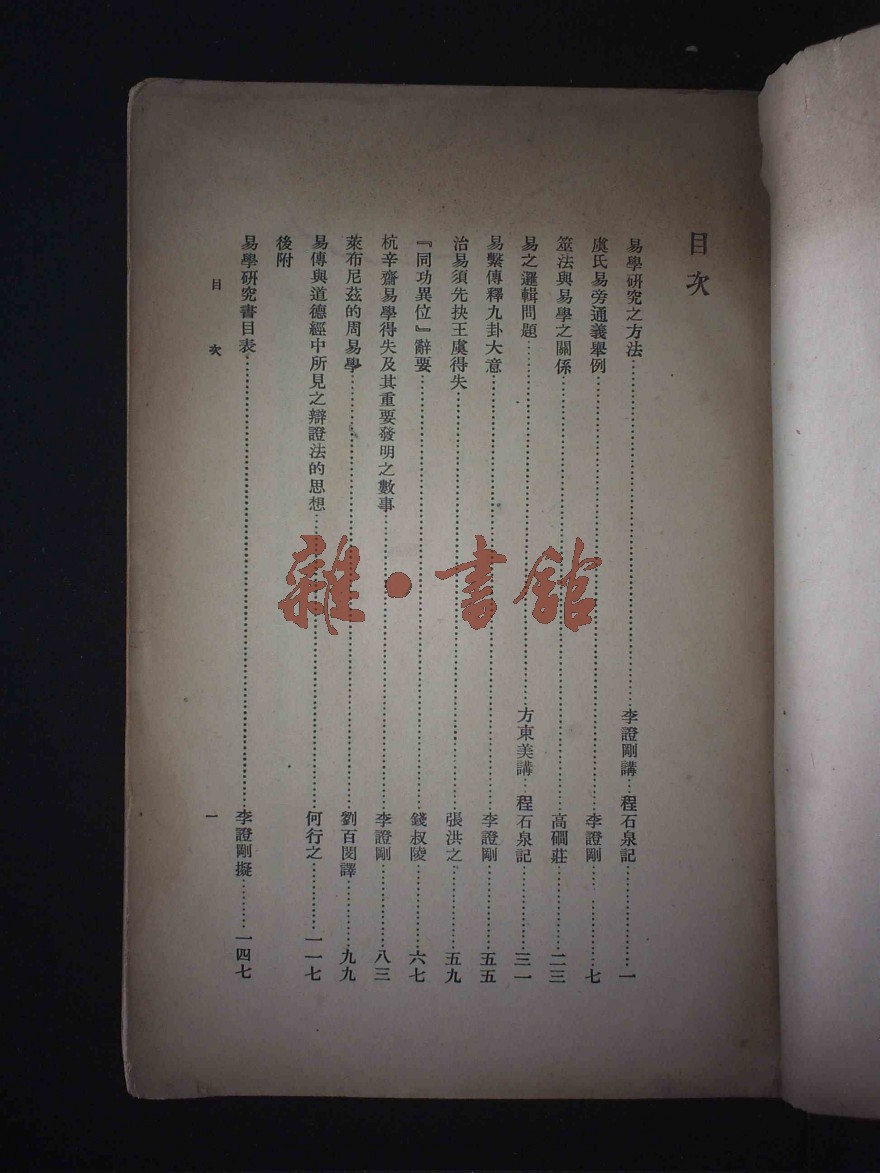 目次
易學研究之方法……李證剛講…程石泉記……一
虞氏易旁通義舉例……李證剛……七
筮法與易學之關係……高礀莊……二三
易之邏輯問題……方東美講…程石泉記……三一
易繫傳釋九卦大意……李證剛……五五
治易須先抉王虞得失……張洪之……五九
『同功異位』辭要……錢叔陵……六七
杭辛齋易學得失及其重要發明之數事……李證剛……八三
萊布尼茲的周易學……劉百閔譯……九九
易傳與道德經中所見之辯證法的思想……何行之……一一七
後附
易學研究書目表……李證剛擬……一四七
目次
一
雜·書館